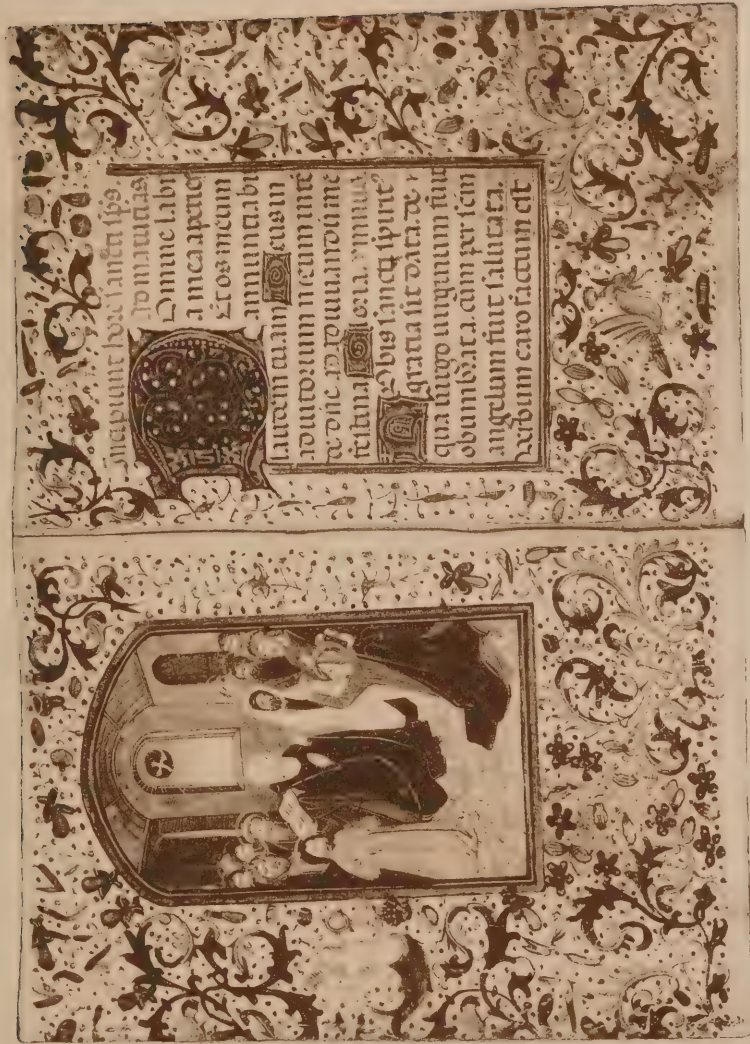 Incipiunt hore sancti sps.
ad matutias
Domine labi
a mea aperies
Et os meum
annuntiabi
laudem tuam Deus in
adiutorium meum inte
de dne ad adiuuandu me
festina gloria ymnus
Nobis sancti spirit
gratia sit data de
qua uirgo uirginum fuit
obumbrata cum per scm
angelum fuit salutata.
Verbum caro factum est